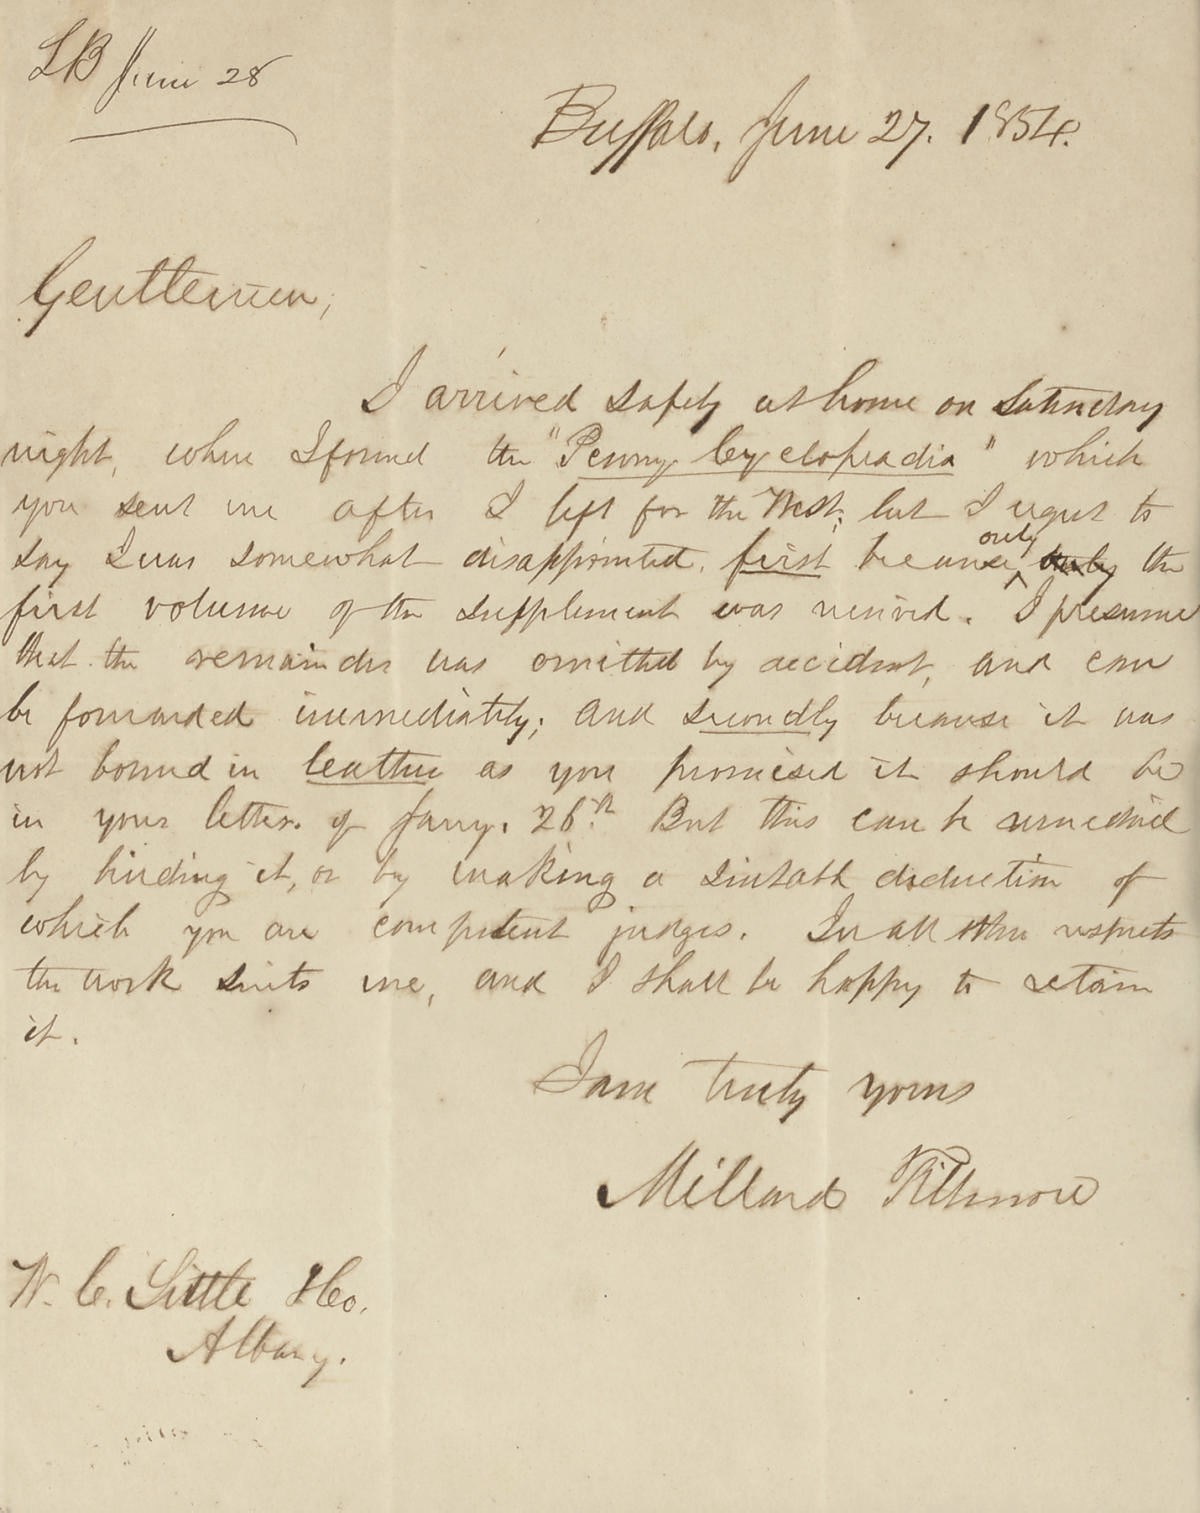 LB June 28
Buffalo, June 27. 1854.
Gentlemen,
I arrived safely at home on Saturday
night, where I found the "Penny Cyclopædia" which
you sent me after I left for the West; but I regret to
say I was somewhat disappointed. first because only the
first volume of the supplement was received. I presume
that the remainder was omitted by accident, and can
be forwarded immediately; and secondly because it was
not bound in leather as you promised it should be
in your letter of Jany. 26th. But this can be remedied
by binding it, or by making a suitable deduction of
which you are competent judges. In all other respects
the work suits me, and I shall be happy to retain
it.
I am truly yours
Millard Fillmore
W. C. Little & Co.
Albany.